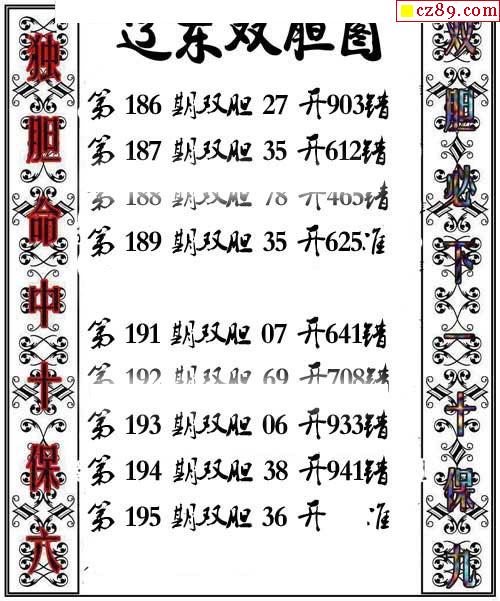 cz89.com
辽东双胆图
独胆命中十保六
双胆必下一十保九
第 186 期双胆 27 开903错
第 187 期双胆 35 开612错
第 188 期双胆 78 开465错
第 189 期双胆 35 开625准
第 191 期双胆 07 开641错
第 192 期双胆 69 开708错
第 193 期双胆 06 开933错
第 194 期双胆 38 开941错
第 195 期双胆 36 开 准